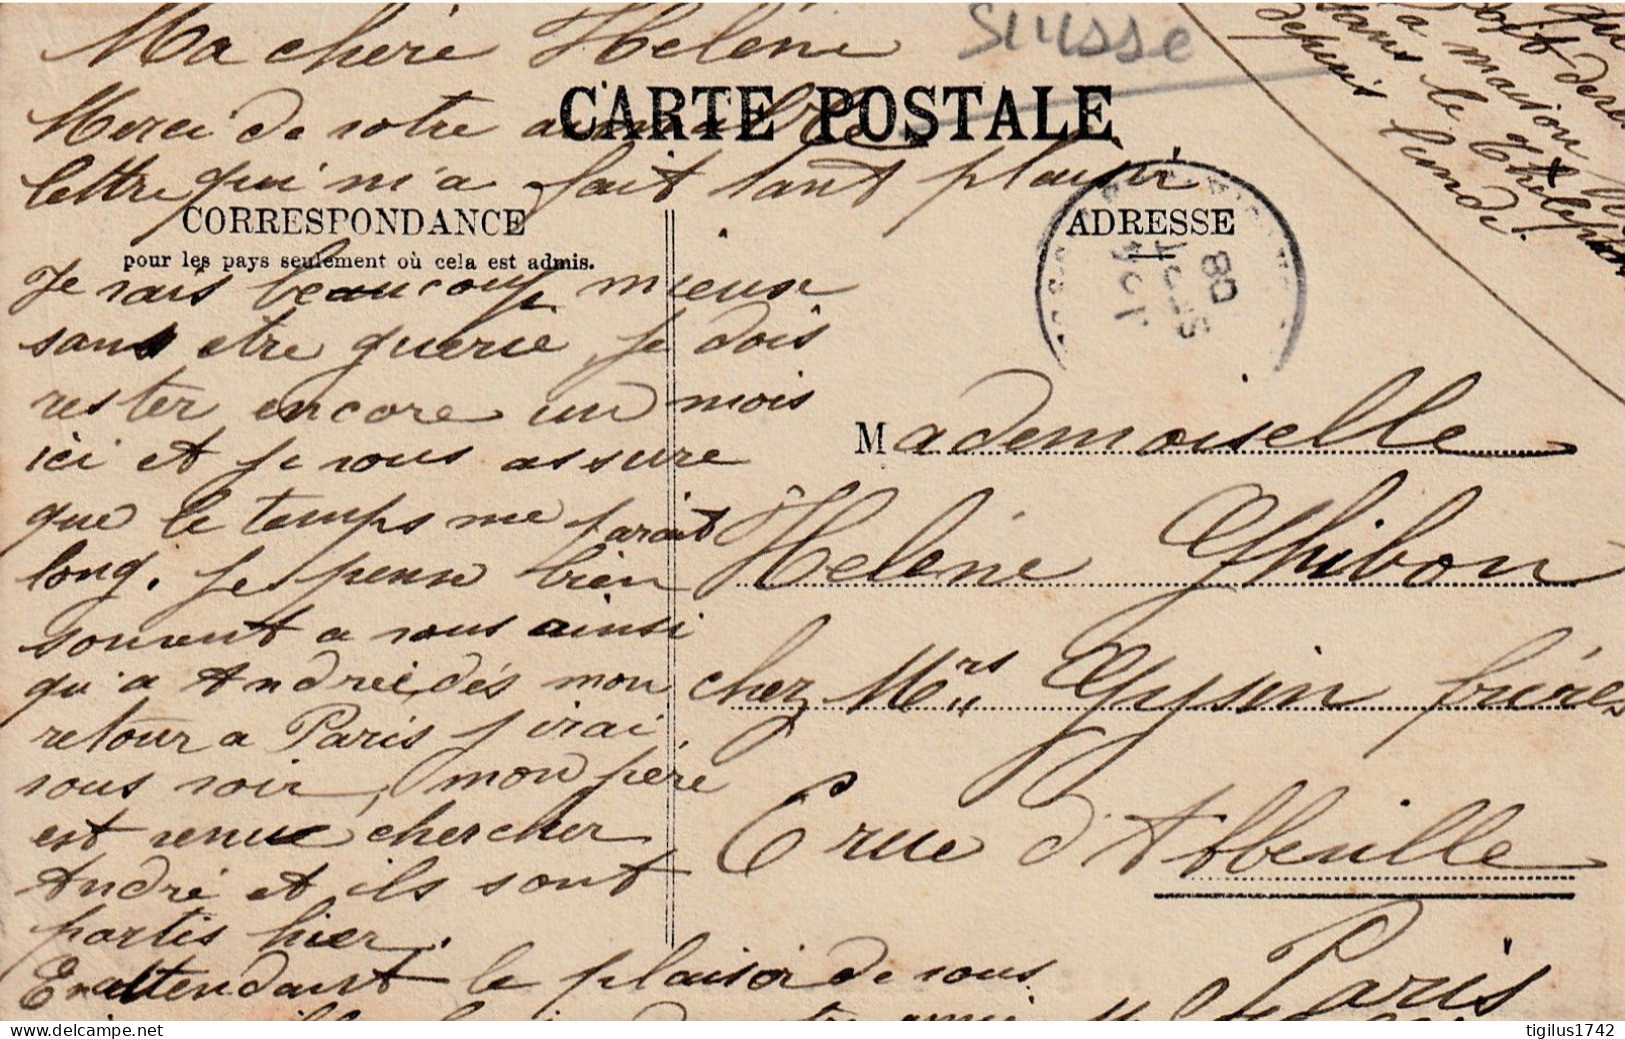 Ma chère Hélène
Suisse
CARTE POSTALE
Merci de votre aimable
lettre qui m'a fait tant plaisir
CORRESPONDANCE
pour les pays seulement où cela est admis.
ADRESSE
Je vais beaucoup mieux
sans etre guerie, je dois
rester encore un mois
ici et je vous assure
que le temps me parait
long. Je pense bien
souvent a vous ainsi
qu'a Andrée, dés mon
retour a Paris j'irai
vous voir, mon père
est venue chercher
André et ils sont
partis hier.
En attendant le plaisir de vous
Mademoiselle
Helène Thibon
chez Mrs Gysin frères
6 rue d'Abbeville
Paris
qui
la maison
sans le Théléphone
depuis lundi.
08
tigilus1742